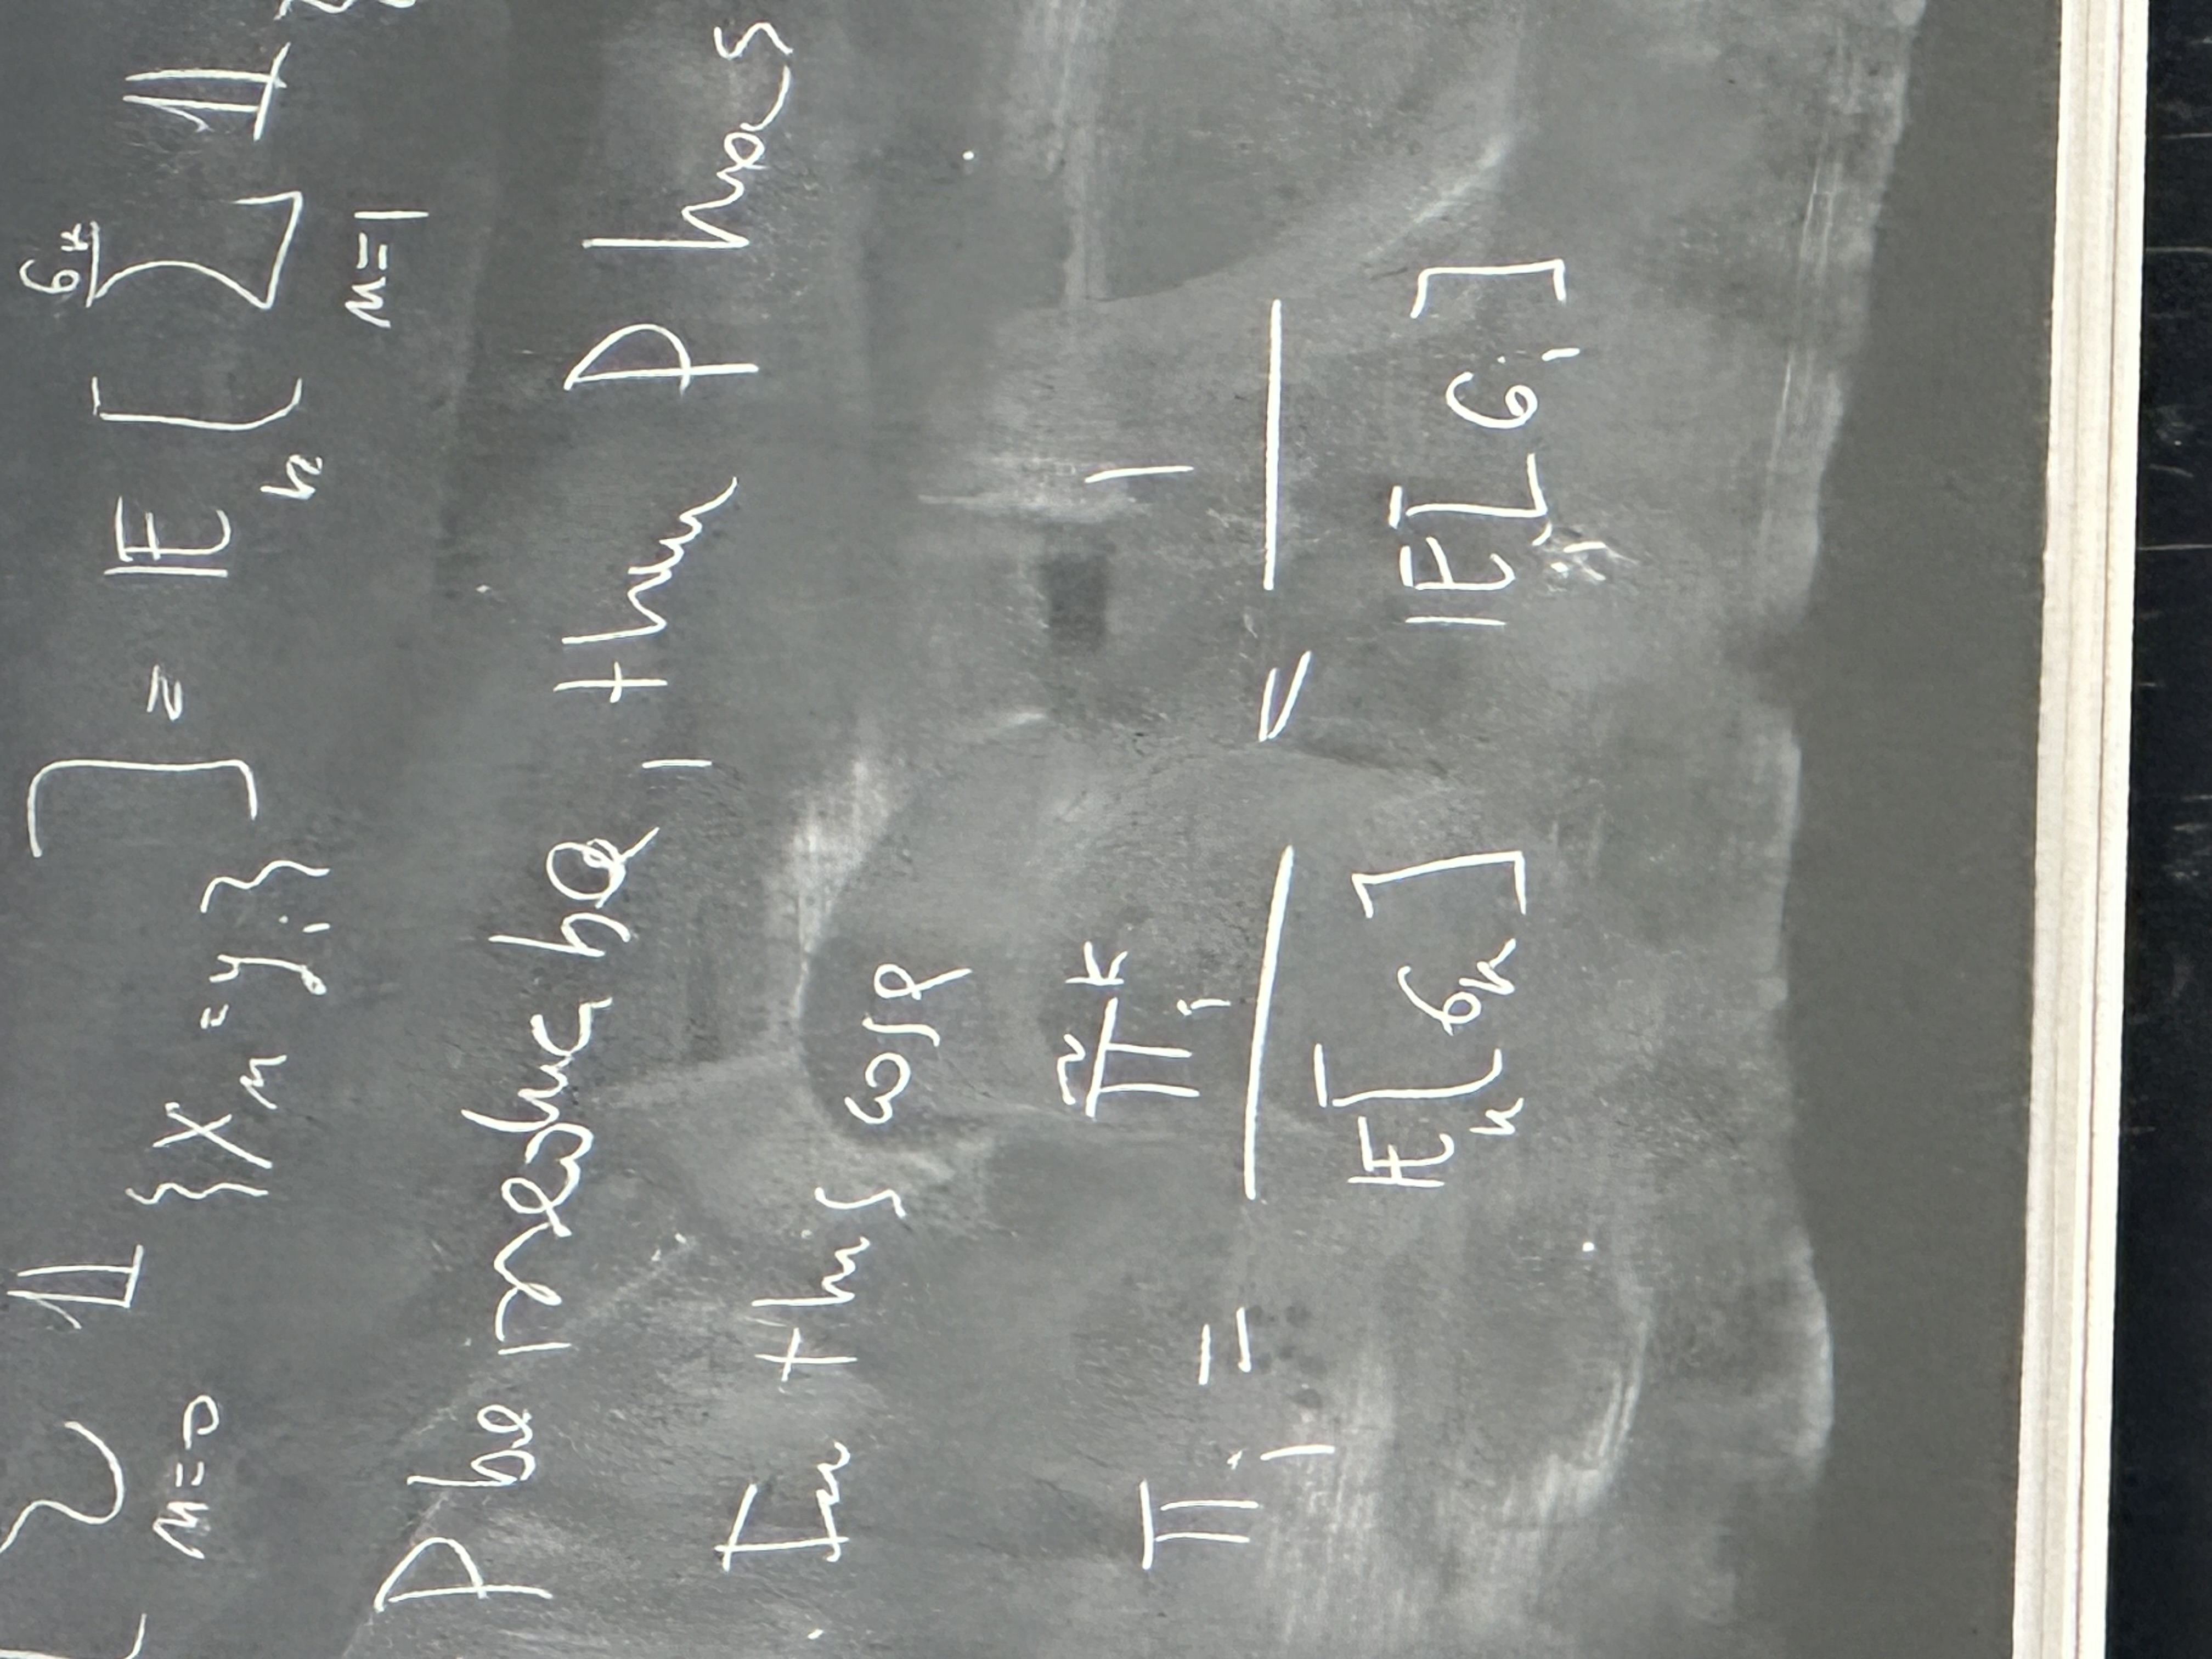 [ ∑ 𝟙 {X_n = y_i} ] = 𝔼_k [ ∑ 𝟙 {
n=0 σ_k n=1
P be irreducible, then P has
In this case
π_i = π̃_i^k / 𝔼_k[σ_k] = 1 / 𝔼_i[σ_i]